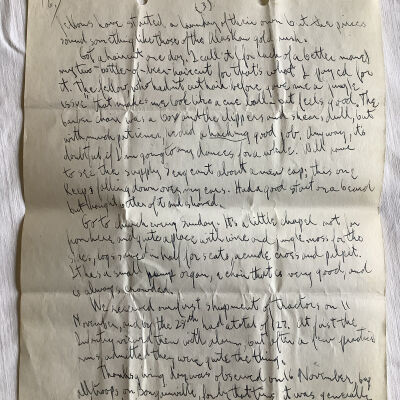 (3)
have started a laundry of their own but the prices
sound something like those of the Alaskan gold rush.
Got a haircut one day, I call it (for lack of a better name)
my two-bottle-of-beer-haircut for that's what I payed for
it. The fellow who had it cut hair before gave me a jungle
" that makes me look like a cue ball, but feels good. The
barber chair was a box and the clippers and shears, dull, but
with much patience he did a hacking good job. Anyway, its
doubtful if I am going to my dances for a while. Will have
to see the supply sergeant about a new cap; this one
keeps falling down over my ears. Had a good start on a beard
but thought better of it and shaved.
Go to church every Sunday. It's a little chapel not far
from here and quite a place with vine and jungle moss for the
sides, logs sawed in half for seats, a crude cross and pulpit.
It has a small pump organ, a choir that is very good, and
is always crowded.
We received our first shipment of tractors on 11
November, and by the 25th had a total of 127. At first the
Infantry viewed them with alarm, but after a few practice
runs, admitted they were quite the thing.
Thanksgiving day was observed on 26 November, by
all troops on Bougainville, it was generally